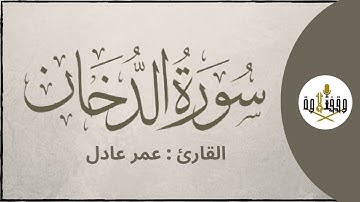 سُورَةُ الدُّخَان
القارئ : عمر عادل